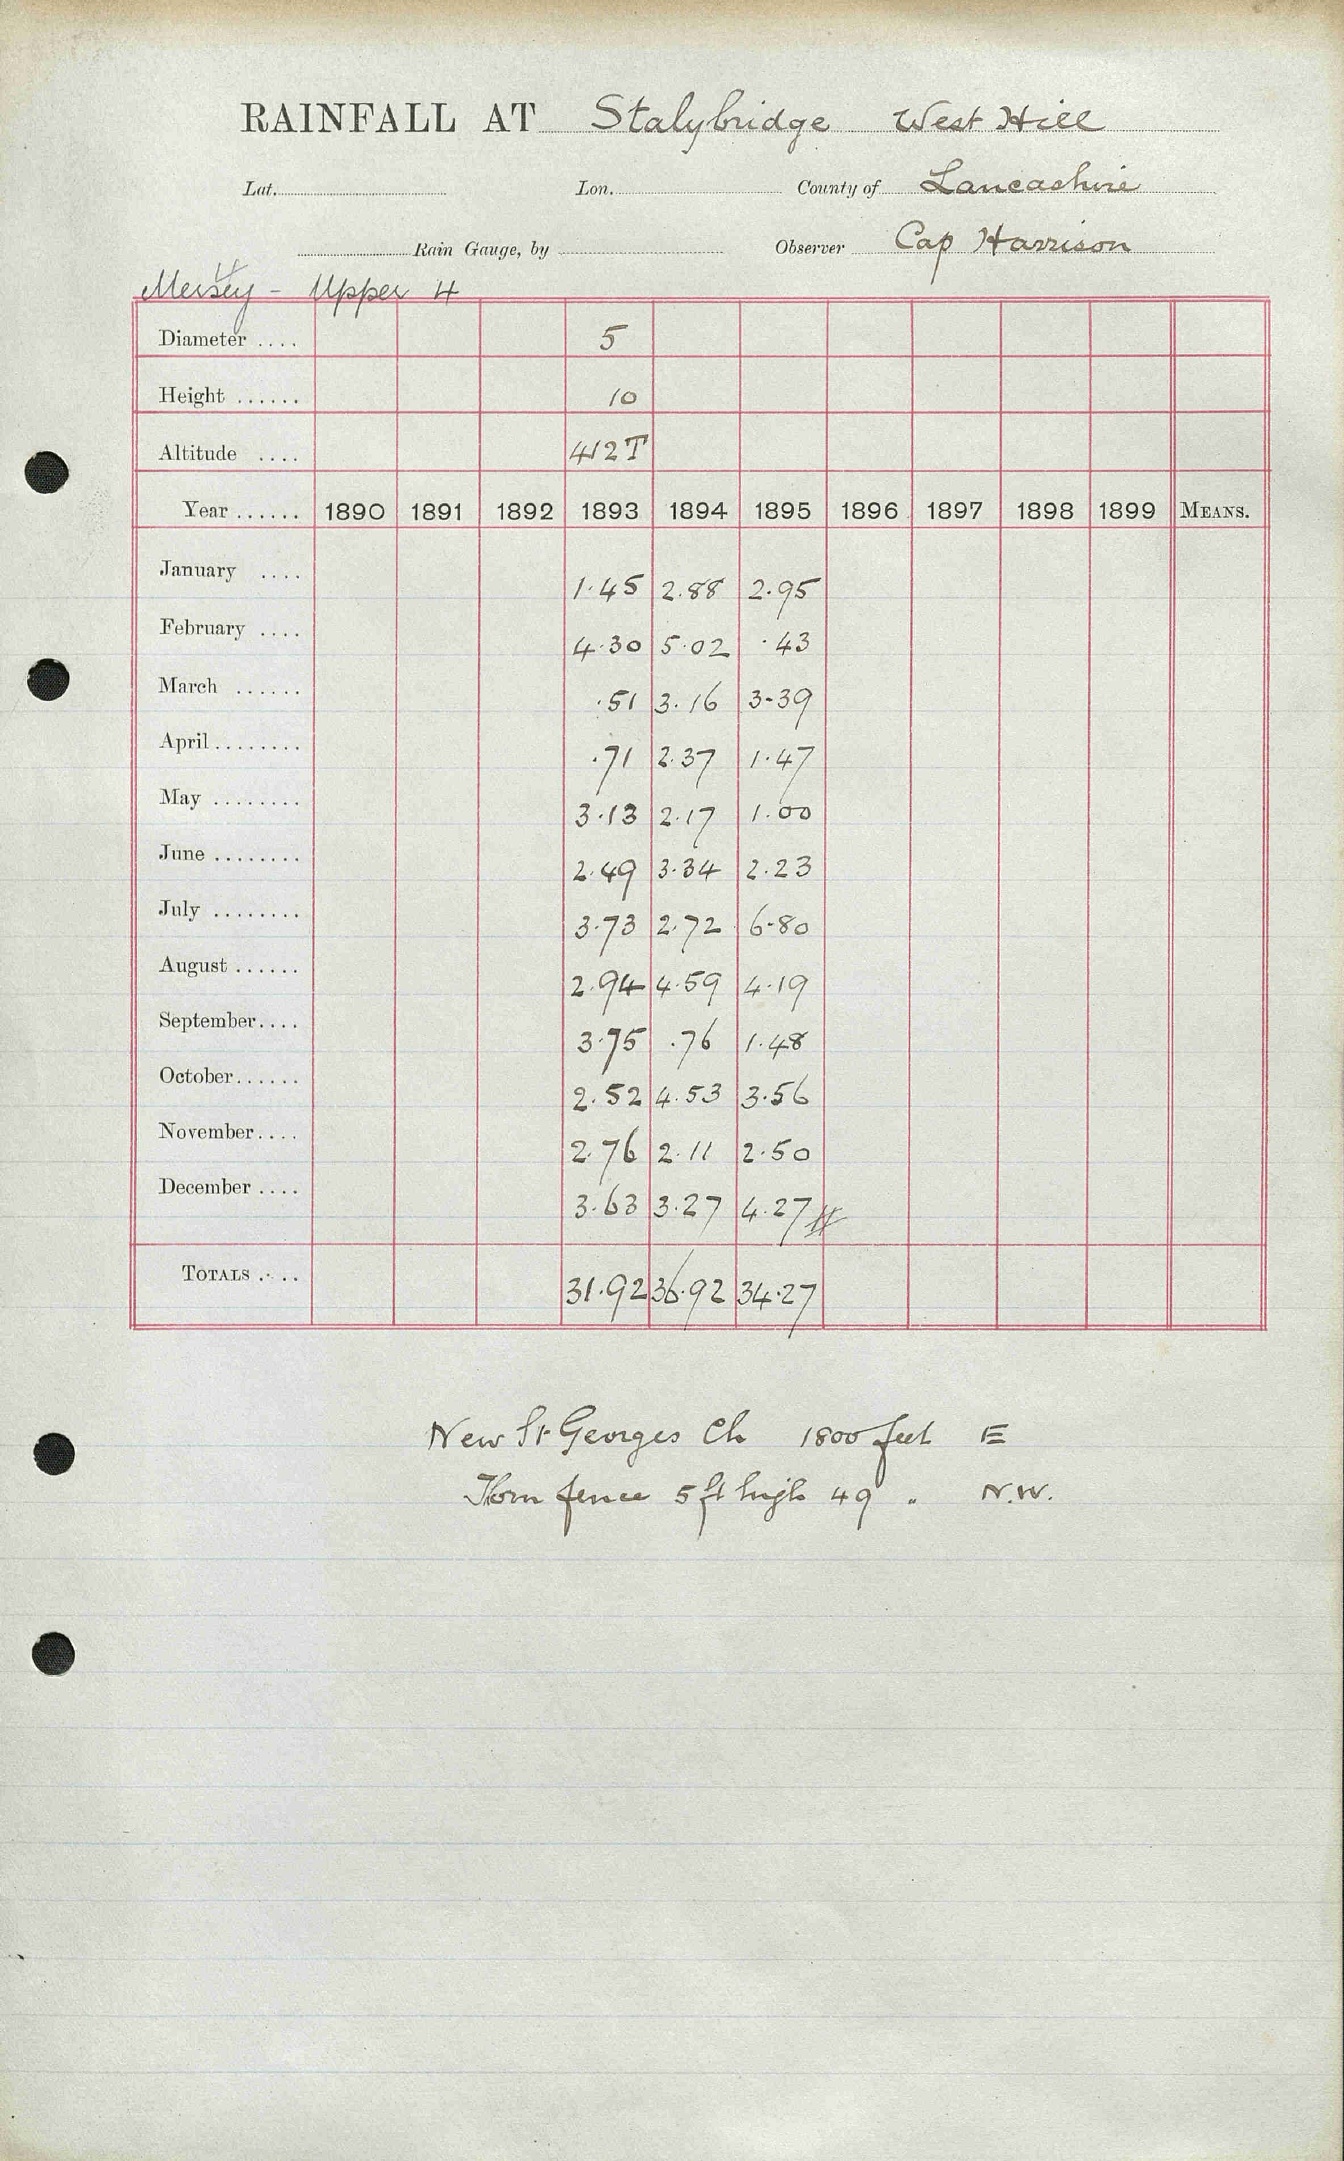 RAINFALL AT Stalybridge West Hill
Lat. Lon. County of Lancashire
Rain Gauge, by Observer Cap Harrison
Mersey - Upper 4
Diameter .... 5
Height ...... 10
Altitude .... 412T
Year ...... 1890 1891 1892 1893 1894 1895 1896 1897 1898 1899 MEANS.
January .... 1.45 2.88 2.95
February .... 4.30 5.02 .43
March ...... .51 3.16 3.39
April ........ .71 2.37 1.47
May ........ 3.13 2.17 1.00
June ........ 2.49 3.34 2.23
July ........ 3.73 2.72 6.80
August ...... 2.94 4.59 4.19
September.... 3.75 .76 1.48
October...... 2.52 4.53 3.56
November.... 2.76 2.11 2.50
December .... 3.63 3.27 4.27
TOTALS .... 31.92 36.92 34.27
New St Georges Ch 1800 feet E
Thorn fence 5 ft high 49 " N.W.